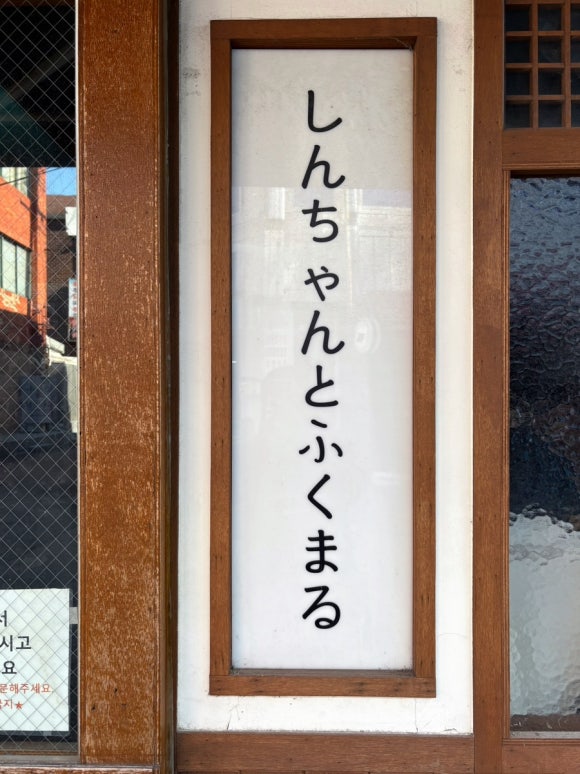 しんちゃんとふくまる
서
시고
요
문해주세요.
지★